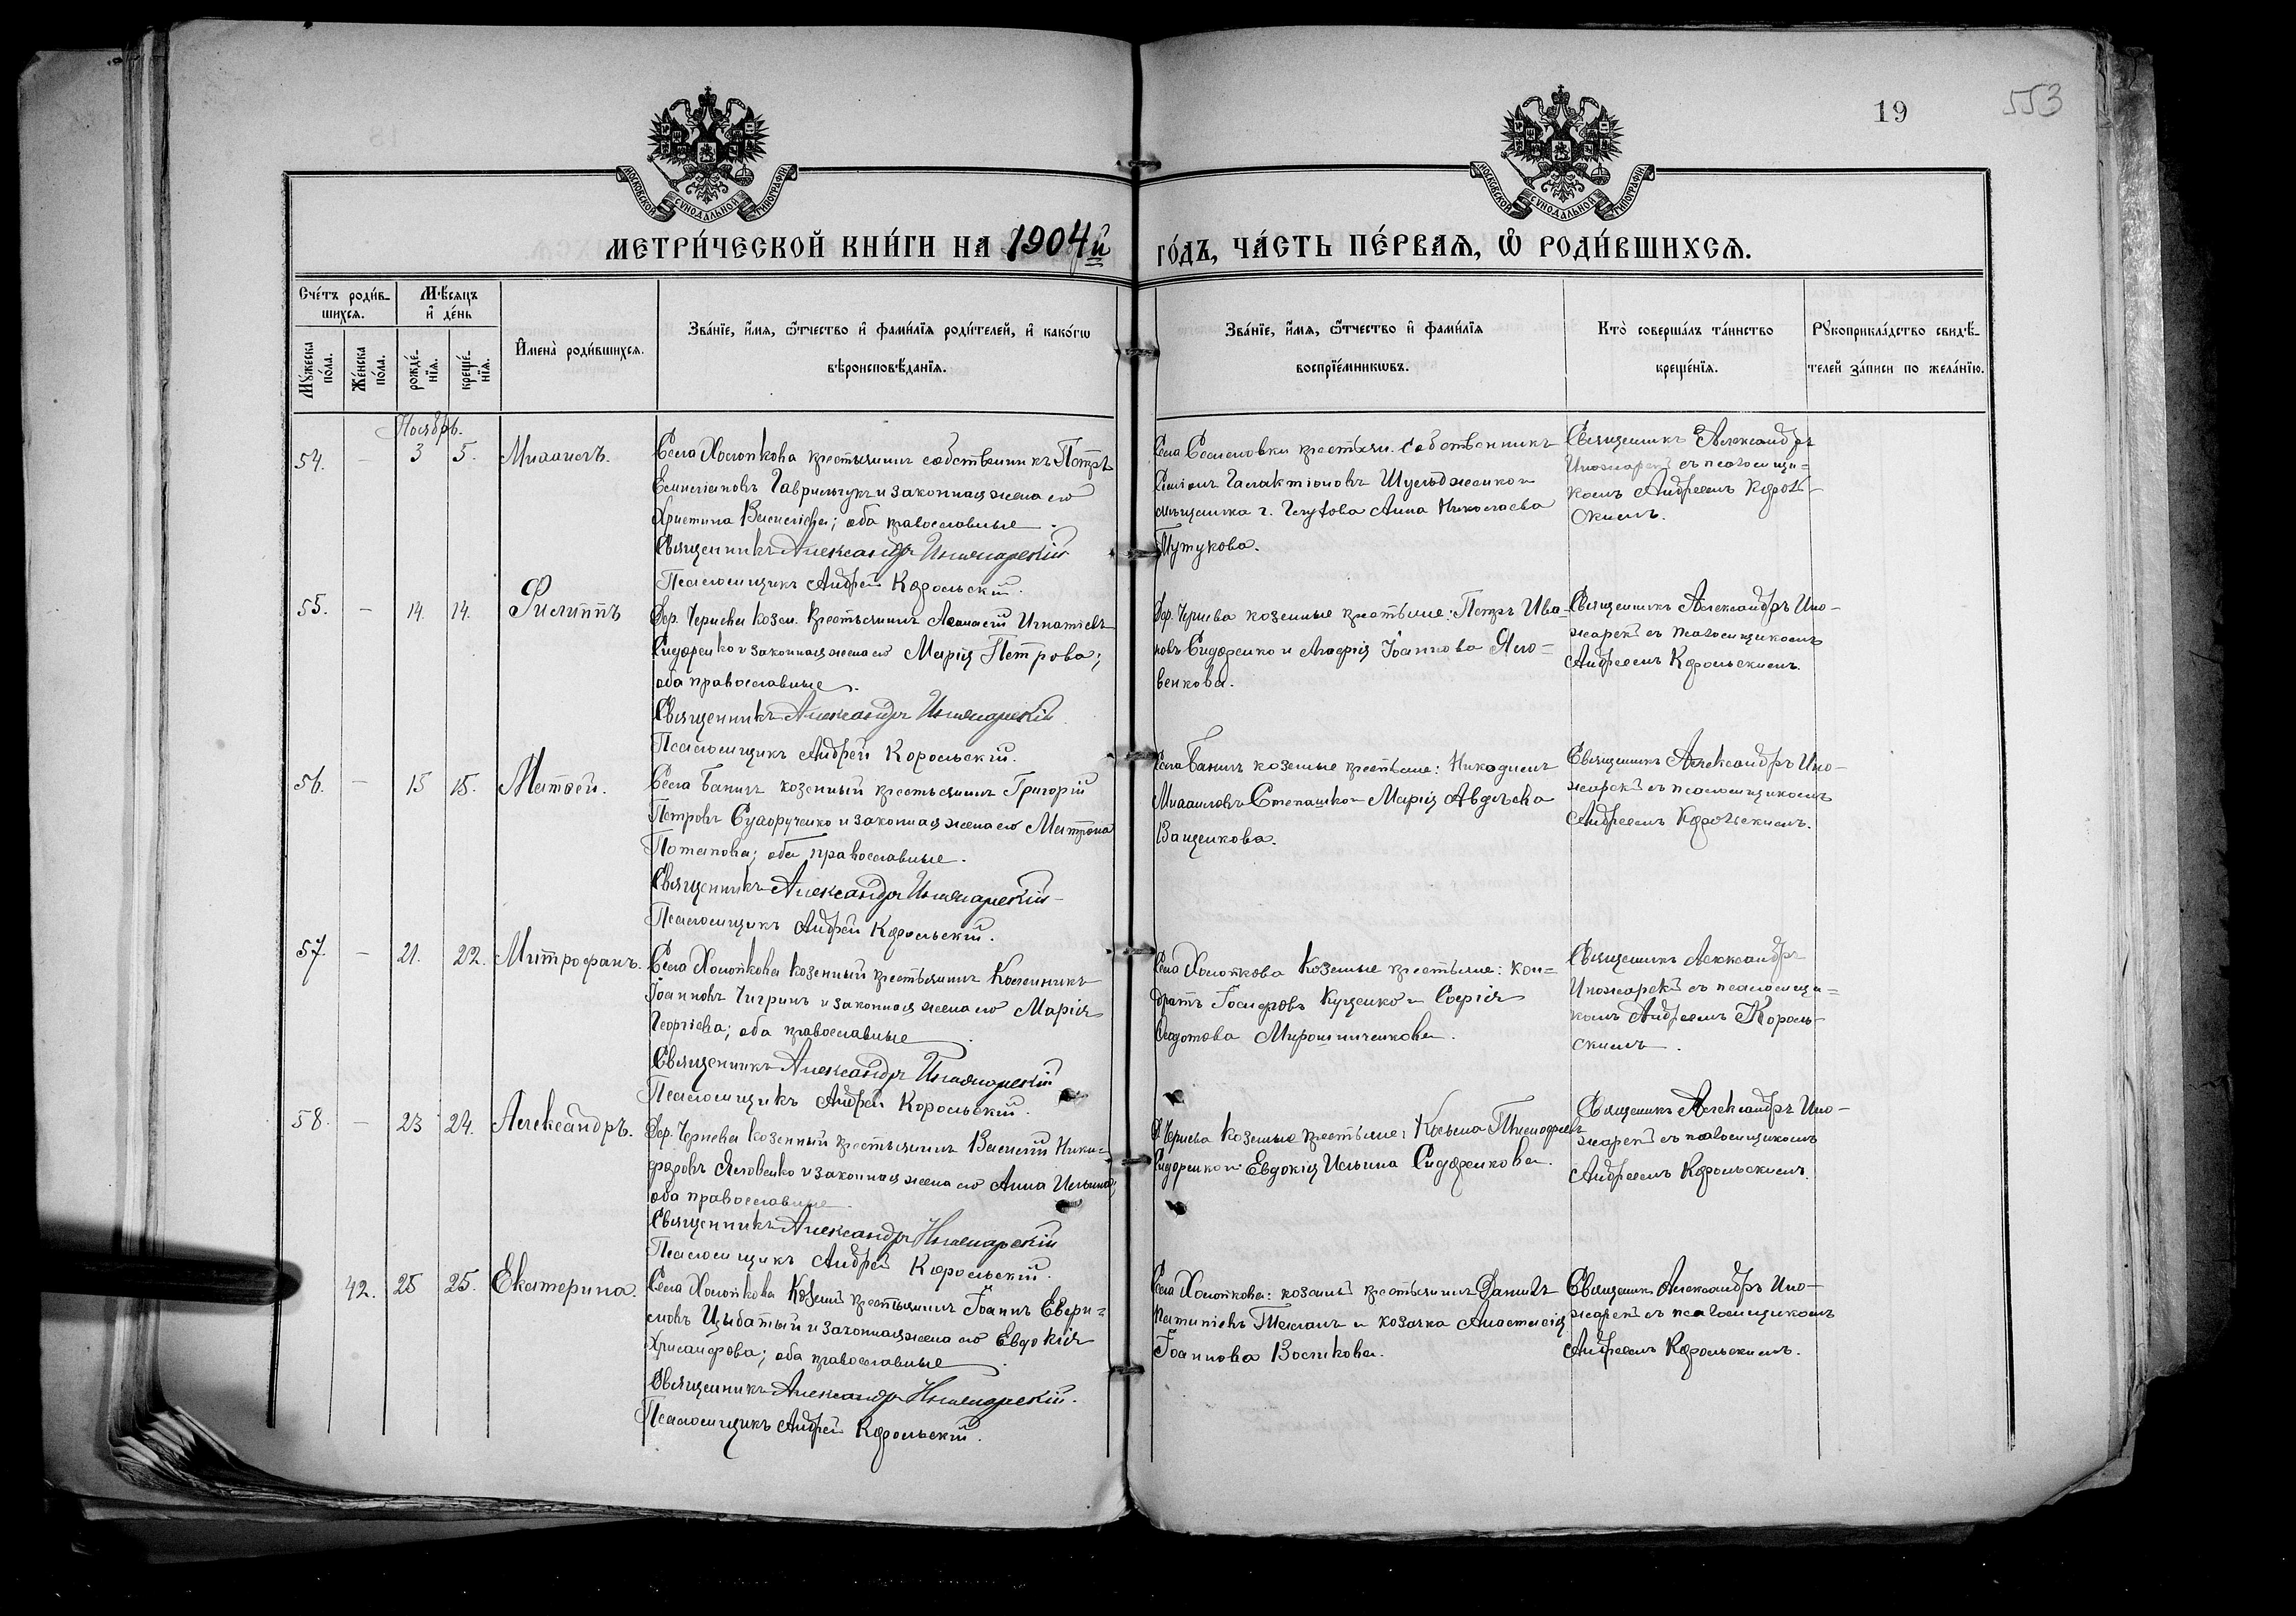 19
553
МОСКОВСКОЙ СУНОДАЛЬНОЙ ТИПОГРАФІИ
МОСКОВСКОЙ СУНОДАЛЬНОЙ ТИПОГРАФІИ
МЕТРИ́ЧЕСКОЙ КНИ́ГИ НА 1904й ГО́ДЪ, ЧА́СТЬ ПЕ́РВАѦ, Ѡ РОДИ́ВШИХСѦ.
Сче́тъ роди́в-
шихсѧ.
Мꙋ́жеска по́ла.
Же́нска по́ла.
Мѣ́сѧцъ
и де́нь
рожде́-
нїѧ.
креще́-
нїѧ.
Имена̀ роди́вшихсѧ.
Зва́нїе, и́мѧ, ѻ́тчество и фами́лїѧ роди́телей, и како́гѡ
вѣроисповѣ́данїѧ.
Зва́нїе, и́мѧ, ѻ́тчество и фами́лїѧ
воспрїе́мникѡвъ.
Кто̀ соверша́лъ та́инство
креще́нїѧ.
Рꙋкоприкла́дство свидѣ́-
телей за́писи по жела́нїю.
Ноябрь.
54. — 3 5. Михаилъ.
Села Холопкова крестьянинъ собственникъ Петръ
Емиліановъ Гаврильчукъ и законная жена его
Христина Василіева; оба православные.
Священникъ Александръ
Псаломщикъ Андрей Корольскій.
Села Семеновки крестьян. собственникъ
Симеонъ Галактіоновъ и
мѣщанка г. Глухова Анна Николаева
Тутукова.
Священникъ Александръ
съ псаломщи-
комъ Андреемъ Король-
скимъ.
55. — 14. 14. Филиппъ
Дер. Чернева козен. крестьянинъ Аѳанасій Игнатіевъ
Сидоренко и законная жена его Марія Петрова;
оба православные.
Священникъ Александръ
Псаломщикъ Андрей Корольскій.
Дер. Чернева козенные крестьяне: Петръ Ива-
новъ Сидоренко и Агафія Іоаннова Яло-
венкова.
Священникъ Александръ
съ псаломщикомъ
Андреемъ Корольскимъ.
56. — 15 15. Матѳей.
Села Баничъ козенный крестьянинъ Григорій
Петровъ Сухорученко и законная жена его Матрона
Потапова; оба православные.
Священникъ Александръ
Псаломщикъ Андрей Корольскій.
Села Баничъ козенные крестьяне: Никодимъ
Михаиловъ Степашко и Марія Авдѣева
Ващенкова.
Священникъ Александръ
съ псаломщикомъ
Андреемъ Корольскимъ.
57. — 21. 22. Митрофанъ.
Села Холопкова козенный крестьянинъ Каллиникъ
Іоанновъ Чигринъ и законная жена его Марія
Георгіева; оба православные.
Священникъ Александръ
Псаломщикъ Андрей Корольскій.
Села Холопкова козенные крестьяне: Кон-
дратъ Іосифовъ Куценко и Софія
Ѳедотова Мирошниченкова.
Священникъ Александръ
съ псаломщи-
комъ Андреемъ Король-
скимъ.
58. — 23 24. Александръ.
Дер. Чернева козенный крестьянинъ Василій Ники-
форовъ Яловенко и законная жена его Анна Ильина;
оба православные.
Священникъ Александръ
Псаломщикъ Андрей Корольскій.
Д. Чернева козенные крестьяне: Косьма Тимофеевъ
Сидоренко и Евдокія Ильина Сидоренкова.
Священникъ Александръ
съ псаломщикомъ
Андреемъ Корольскимъ.
42. 25 25. Екатерина.
Села Холопкова козенный крестьянинъ Іоаннъ Евфи-
мовъ Цыбатый и законная жена его Евдокія
Хрисанфова; оба православные.
Священникъ Александръ
Псаломщикъ Андрей Корольскій.
Села Холопкова: козенный крестьянинъ Даніилъ
и козачка Анастасія
Іоаннова
Священникъ Александръ
съ псаломщикомъ
Андреемъ Корольскимъ.